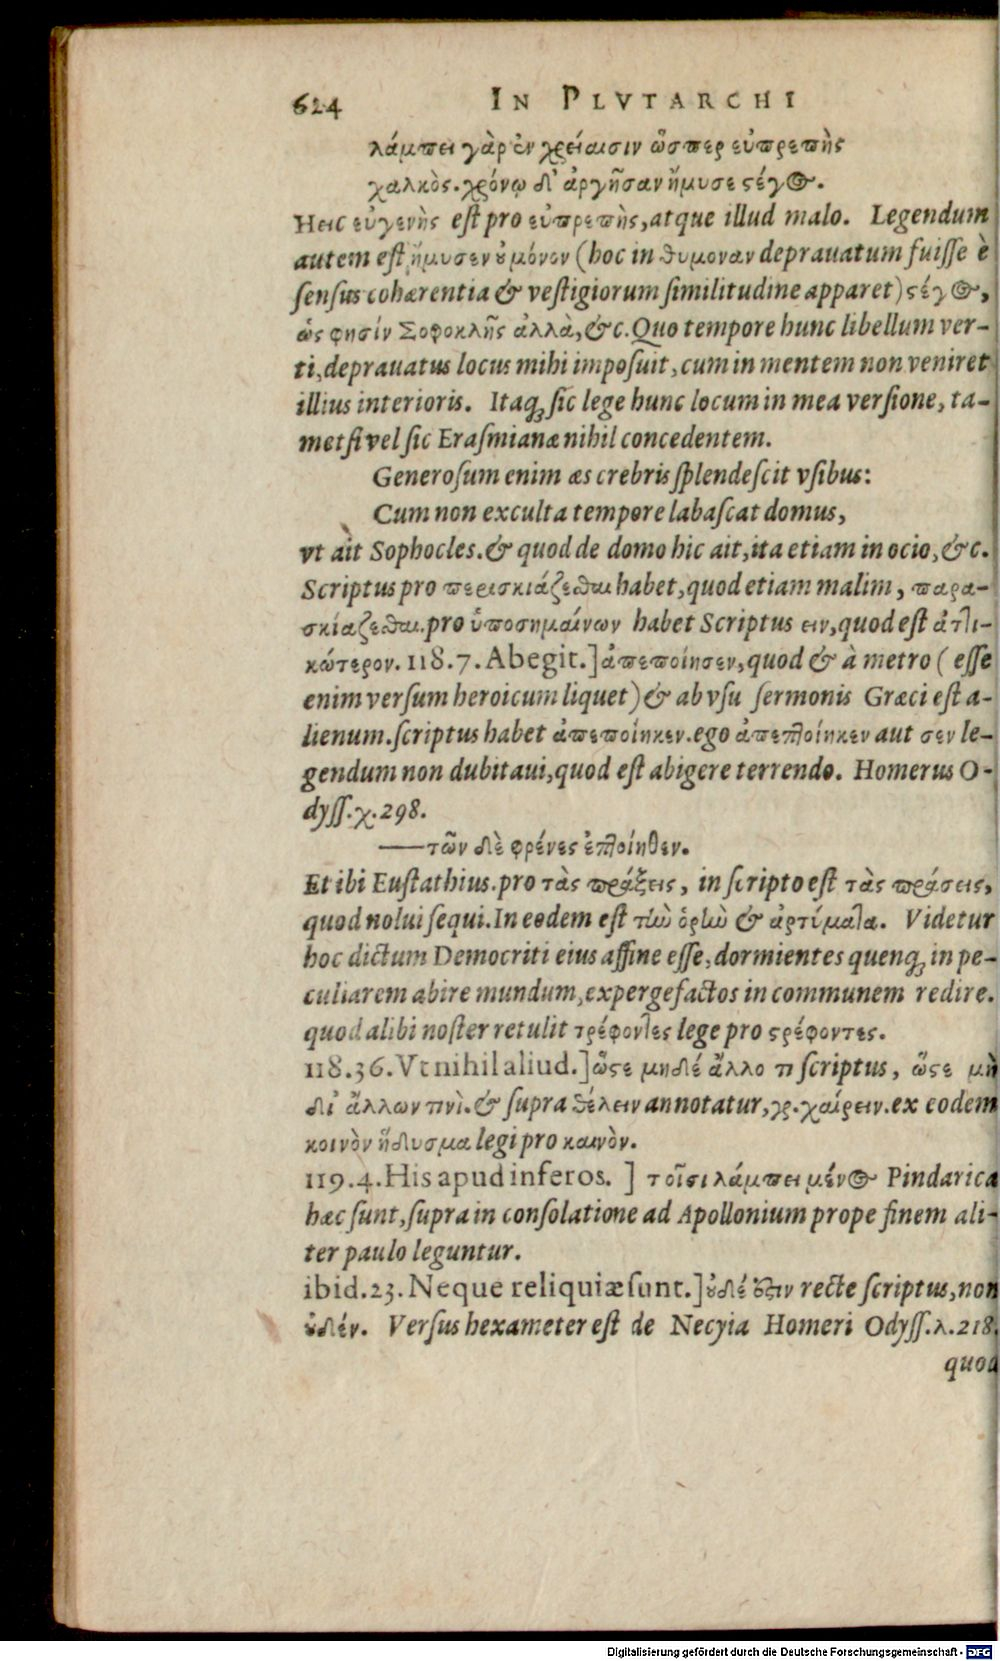 624 IN PLVTARCHI
λάμπει γὰρ ἐν χρείαισιν ὥσπερ εὐπρεπὴς
χαλκὸς. χρόνῳ δ' ἀργῆσαν ἤμυσε στέγος.
Heic εὐγενὴς est pro εὐπρεπὴς, atque illud malo. Legendum
autem est ἤμυσεν οὐ μόνον (hoc in θυμοναν deprauatum fuisse è
sensus cohærentia & vestigiorum similitudine apparet) στέγος,
ὥς φησίν Σοφοκλῆς ἀλλὰ, &c. Quo tempore hunc libellum ver-
ti, deprauatus locus mihi imposuit, cum in mentem non veniret
illius interioris. Itaq; sic lege hunc locum in mea versione, ta-
metsi vel sic Erasmianæ nihil concedentem.
Generosum enim æs crebris splendescit vsibus:
Cum non exculta tempore labascat domus,
vt ait Sophocles. & quod de domo hic ait, ita etiam in ocio, &c.
Scriptus pro περισκιάζεσθαι habet, quod etiam malim, παρα-
σκίαζεσθαι. pro ὑποσημαίνων habet Scriptus ειν, quod est ἀττι-
κώτερον. 118.7. Abegit.] ἀπεποίησεν, quod & à metro (esse
enim versum heroicum liquet) & ab vsu sermonis Græci est a-
lienum. scriptus habet ἀπεποίηκεν. ego ἀπεπτοίηκεν aut σεν le-
gendum non dubitaui, quod est abigere terrendo. Homerus O-
dyss. χ. 298.
—— τῶν δὲ φρένες ἐπτοίηθεν.
Et ibi Eustathius. pro τὰς πράξεις, in scripto est τὰς πράσεις,
quod nolui sequi. In eodem est τὼ ὀρθὼ & ἀρτίματα. Videtur
hoc dictum Democriti eius affine esse, dormientes quenq; in pe-
culiarem abire mundum, expergefactos in communem redire.
quod alibi noster retulit τρέφοντες lege pro στρέφοντες.
118.36. Vt nihil aliud.] ὥστε μηδέ ἄλλο τι scriptus, ὥστε μὴ
δι' ἄλλων τινὶ. & supra θέλειν annotatur, γρ. χαίρειν. ex eodem
κοινὸν ἥδυσμα legi pro καινὸν.
119.4. His apud inferos. ] τοῖσι λάμπει μένος Pindarica
hæc sunt, supra in consolatione ad Apollonium prope finem ali-
ter paulo leguntur.
ibid. 23. Neque reliquiæ sunt.] οὐδέ οὖστιν recte scriptus, non
οὐδέν. Versus hexameter est de Necyia Homeri Odyss. λ. 218.
quod
Digitalisierung gefördert durch die Deutsche Forschungsgemeinschaft - DFG